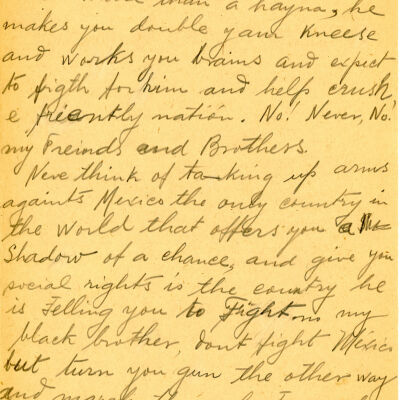 than a hayna, he
makes you double yam kneese
and works you brains and expict
to figth for him and help crush
e frieently nation. No! Never, No!
my Freinds and Brothers.
Neve think of ta-king up arms
againts Mexico the only country in
the world that offers you a
Shadow of a chance, and give you
social rights is the country he
is Telling you to Fight no my
black brother, dont fight Mexico
but turn you gun the other way
and